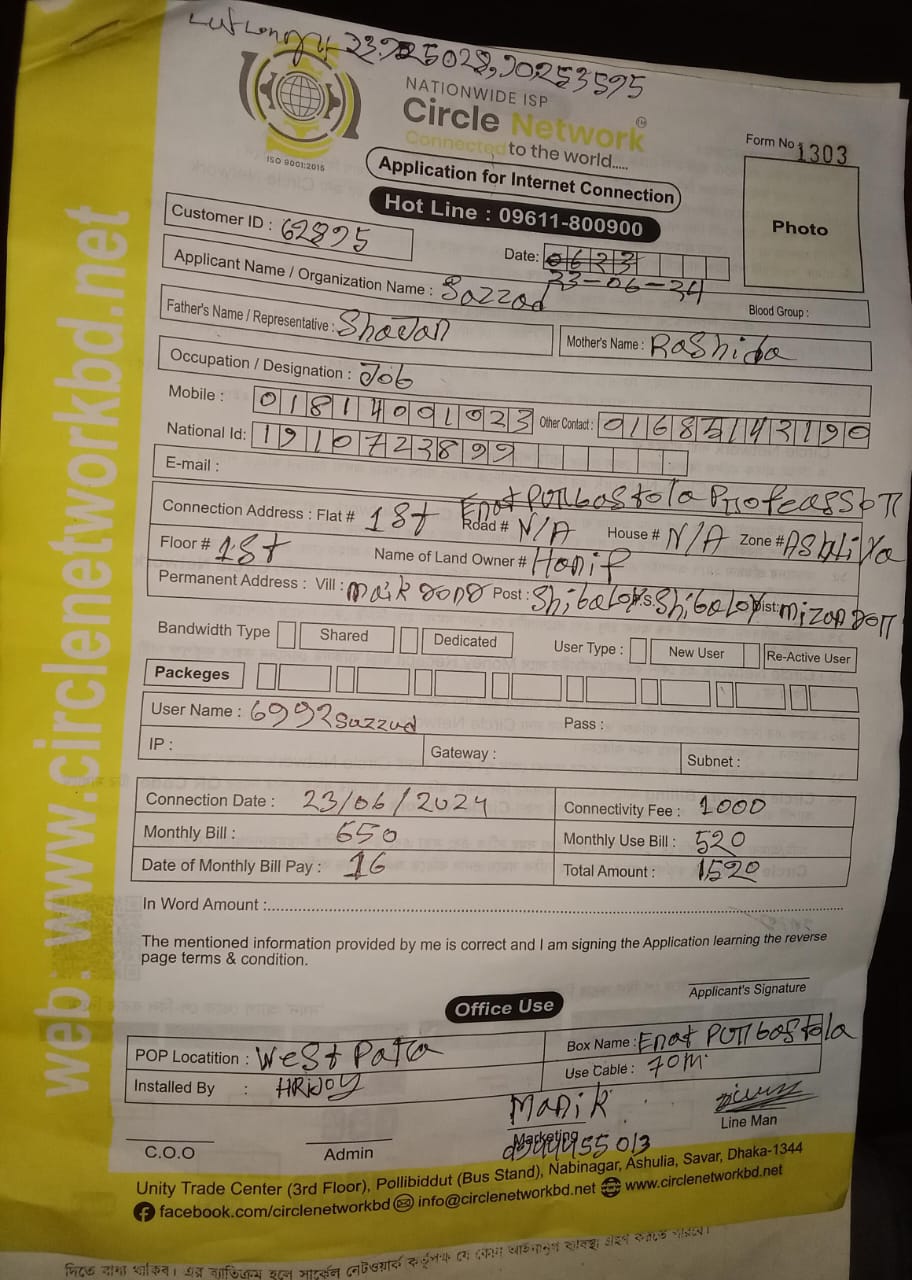 23.925028, 90253595
NATIONWIDE ISP
Circle Network
Connected to the world.....
ISO 9001:2015
Form No 1303
Application for Internet Connection
Hot Line : 09611-800900
Photo
Customer ID : 62895
Date: 0623
23-06-24
Applicant Name / Organization Name : Sazzad
Blood Group :
Father's Name / Representative : Shajan
Mother's Name : Rashida
Occupation / Designation : Job
Mobile : 01814001023 Other Contact :
National Id: 1910723899
E-mail :
Connection Address : Flat # 1st Road # N/A House # N/A Zone #
Floor # 1st Name of Land Owner # Hanif
Permanent Address : Vill : Post : Shibaloy P.S: Shibaloy Dist:
Bandwidth Type Shared Dedicated User Type : New User Re-Active User
Packeges
User Name : 6992sazzad Pass :
IP : Gateway : Subnet :
Connection Date : 23/06/2024 Connectivity Fee : 1000
Monthly Bill : 650 Monthly Use Bill : 520
Date of Monthly Bill Pay : 16 Total Amount : 1520
In Word Amount :
The mentioned information provided by me is correct and I am signing the Application learning the reverse
page terms & condition.
Applicant's Signature
Office Use
POP Locatition : West Para Box Name :
Installed By : HRidoy Use Cable : 70m
Manik
C.O.O Admin Marketing Line Man
Unity Trade Center (3rd Floor), Pollibiddut (Bus Stand), Nabinagar, Ashulia, Savar, Dhaka-1344
facebook.com/circlenetworkbd info@circlenetworkbd.net www.circlenetworkbd.net
web: www.circlenetworkbd.net